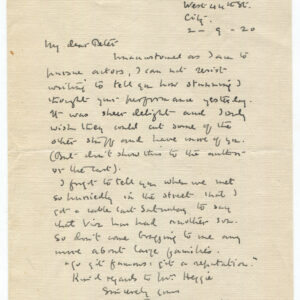 West 44th St.
City.
2-9-20
My dear Peter
Unaccustomed as I am to
pursue actors, I can not resist
writing to tell you how stunning I
thought your performance yesterday.
It was sheer delight and I only
wish they could cut some of the
other stuff and have more of you.
(But don't show this to the author
or the cast).
I forgot to tell you when we met
so hurriedly in the street that I
got a cable last Saturday to say
that Vix has had another son.
So don't come bragging to me any
more about large families.
"Go git famous; git a reputation"
Kind regards to Mrs. Heggie
Sincerely yours